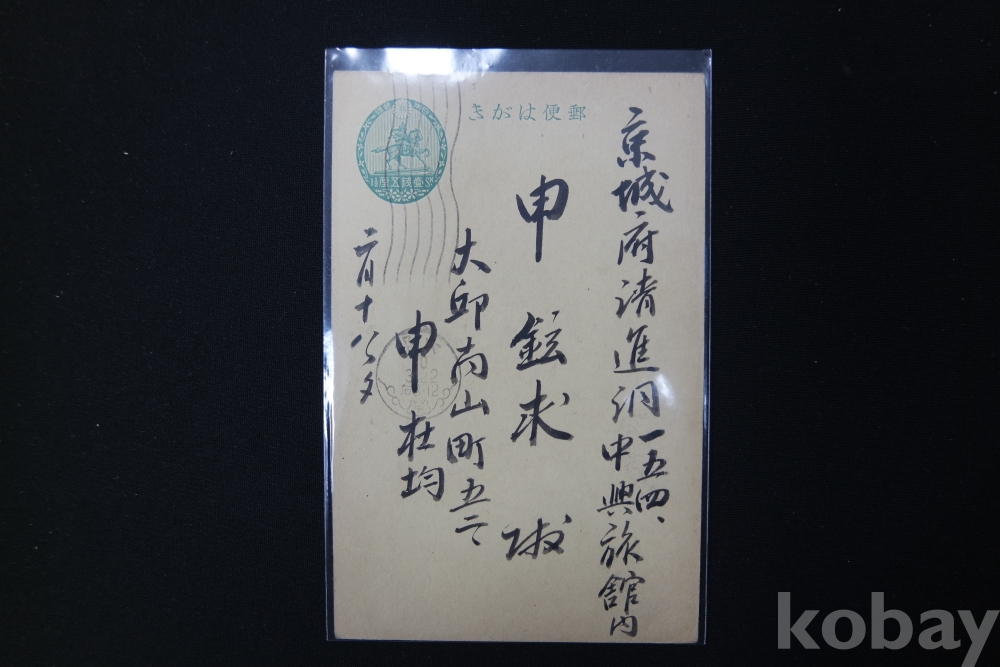 郵便はがき
京城府清進洞一五四、
中興旅館內
申鉉求 淑
大邱南山町五二
申杜均
六月十八夕
kobay